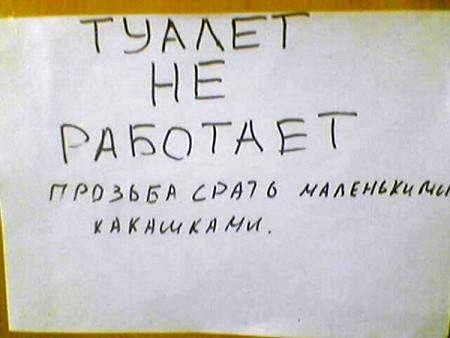 ТУАЛЕТ
НЕ
РАБОТАЕТ
ПРОЗЬБА СРАТЬ МАЛЕНЬКИМИ
КАКАШКАМИ.